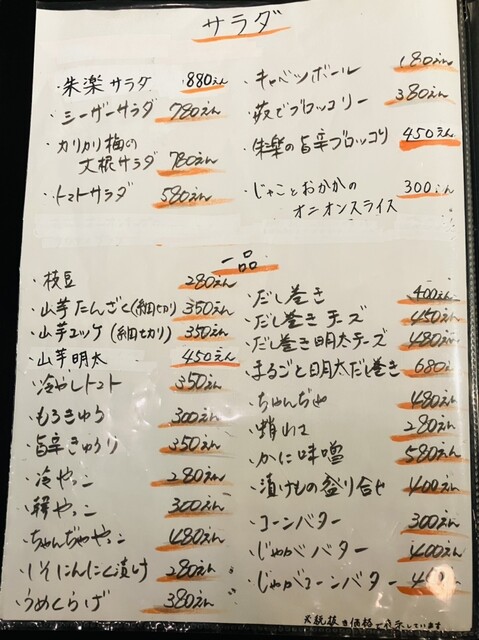 サラダ
・朱楽サラダ 880えん
・シーザーサラダ 780えん
・カリカリ梅の
大根サラダ 780えん
・トマトサラダ 580えん
・キャベツボール 180えん
・茹でブロッコリー 380えん
・朱楽の旨辛ブロッコリ 450えん
・じゃことおかかの 300えん
オニオンスライス
一品
・枝豆 280えん
・山芋たんざく(細切り) 350えん
・山芋ユッケ(細切り) 350えん
・山芋明太 450えん
・冷やしトマト 350えん
・もろきゅう 300えん
・旨辛きゅうり 350えん
・冷やっこ 280えん
・韓やっこ 300えん
・ちゃんぢゃやっこ 480えん
・しそにんにく漬け 280えん
・うめくらげ 380えん
・だし巻き 400えん
・だし巻きチーズ 450えん
・だし巻き明太チーズ 480えん
・まるごと明太だし巻き 680
・ちゃんぢゃ 480えん
・蛸わさ 280えん
・かに味噌 580えん
・漬けもの盛り合せ 400えん
・コーンバター 300えん
・じゃがバター 400えん
・じゃがコーンバター
※税抜き価格で表示しています